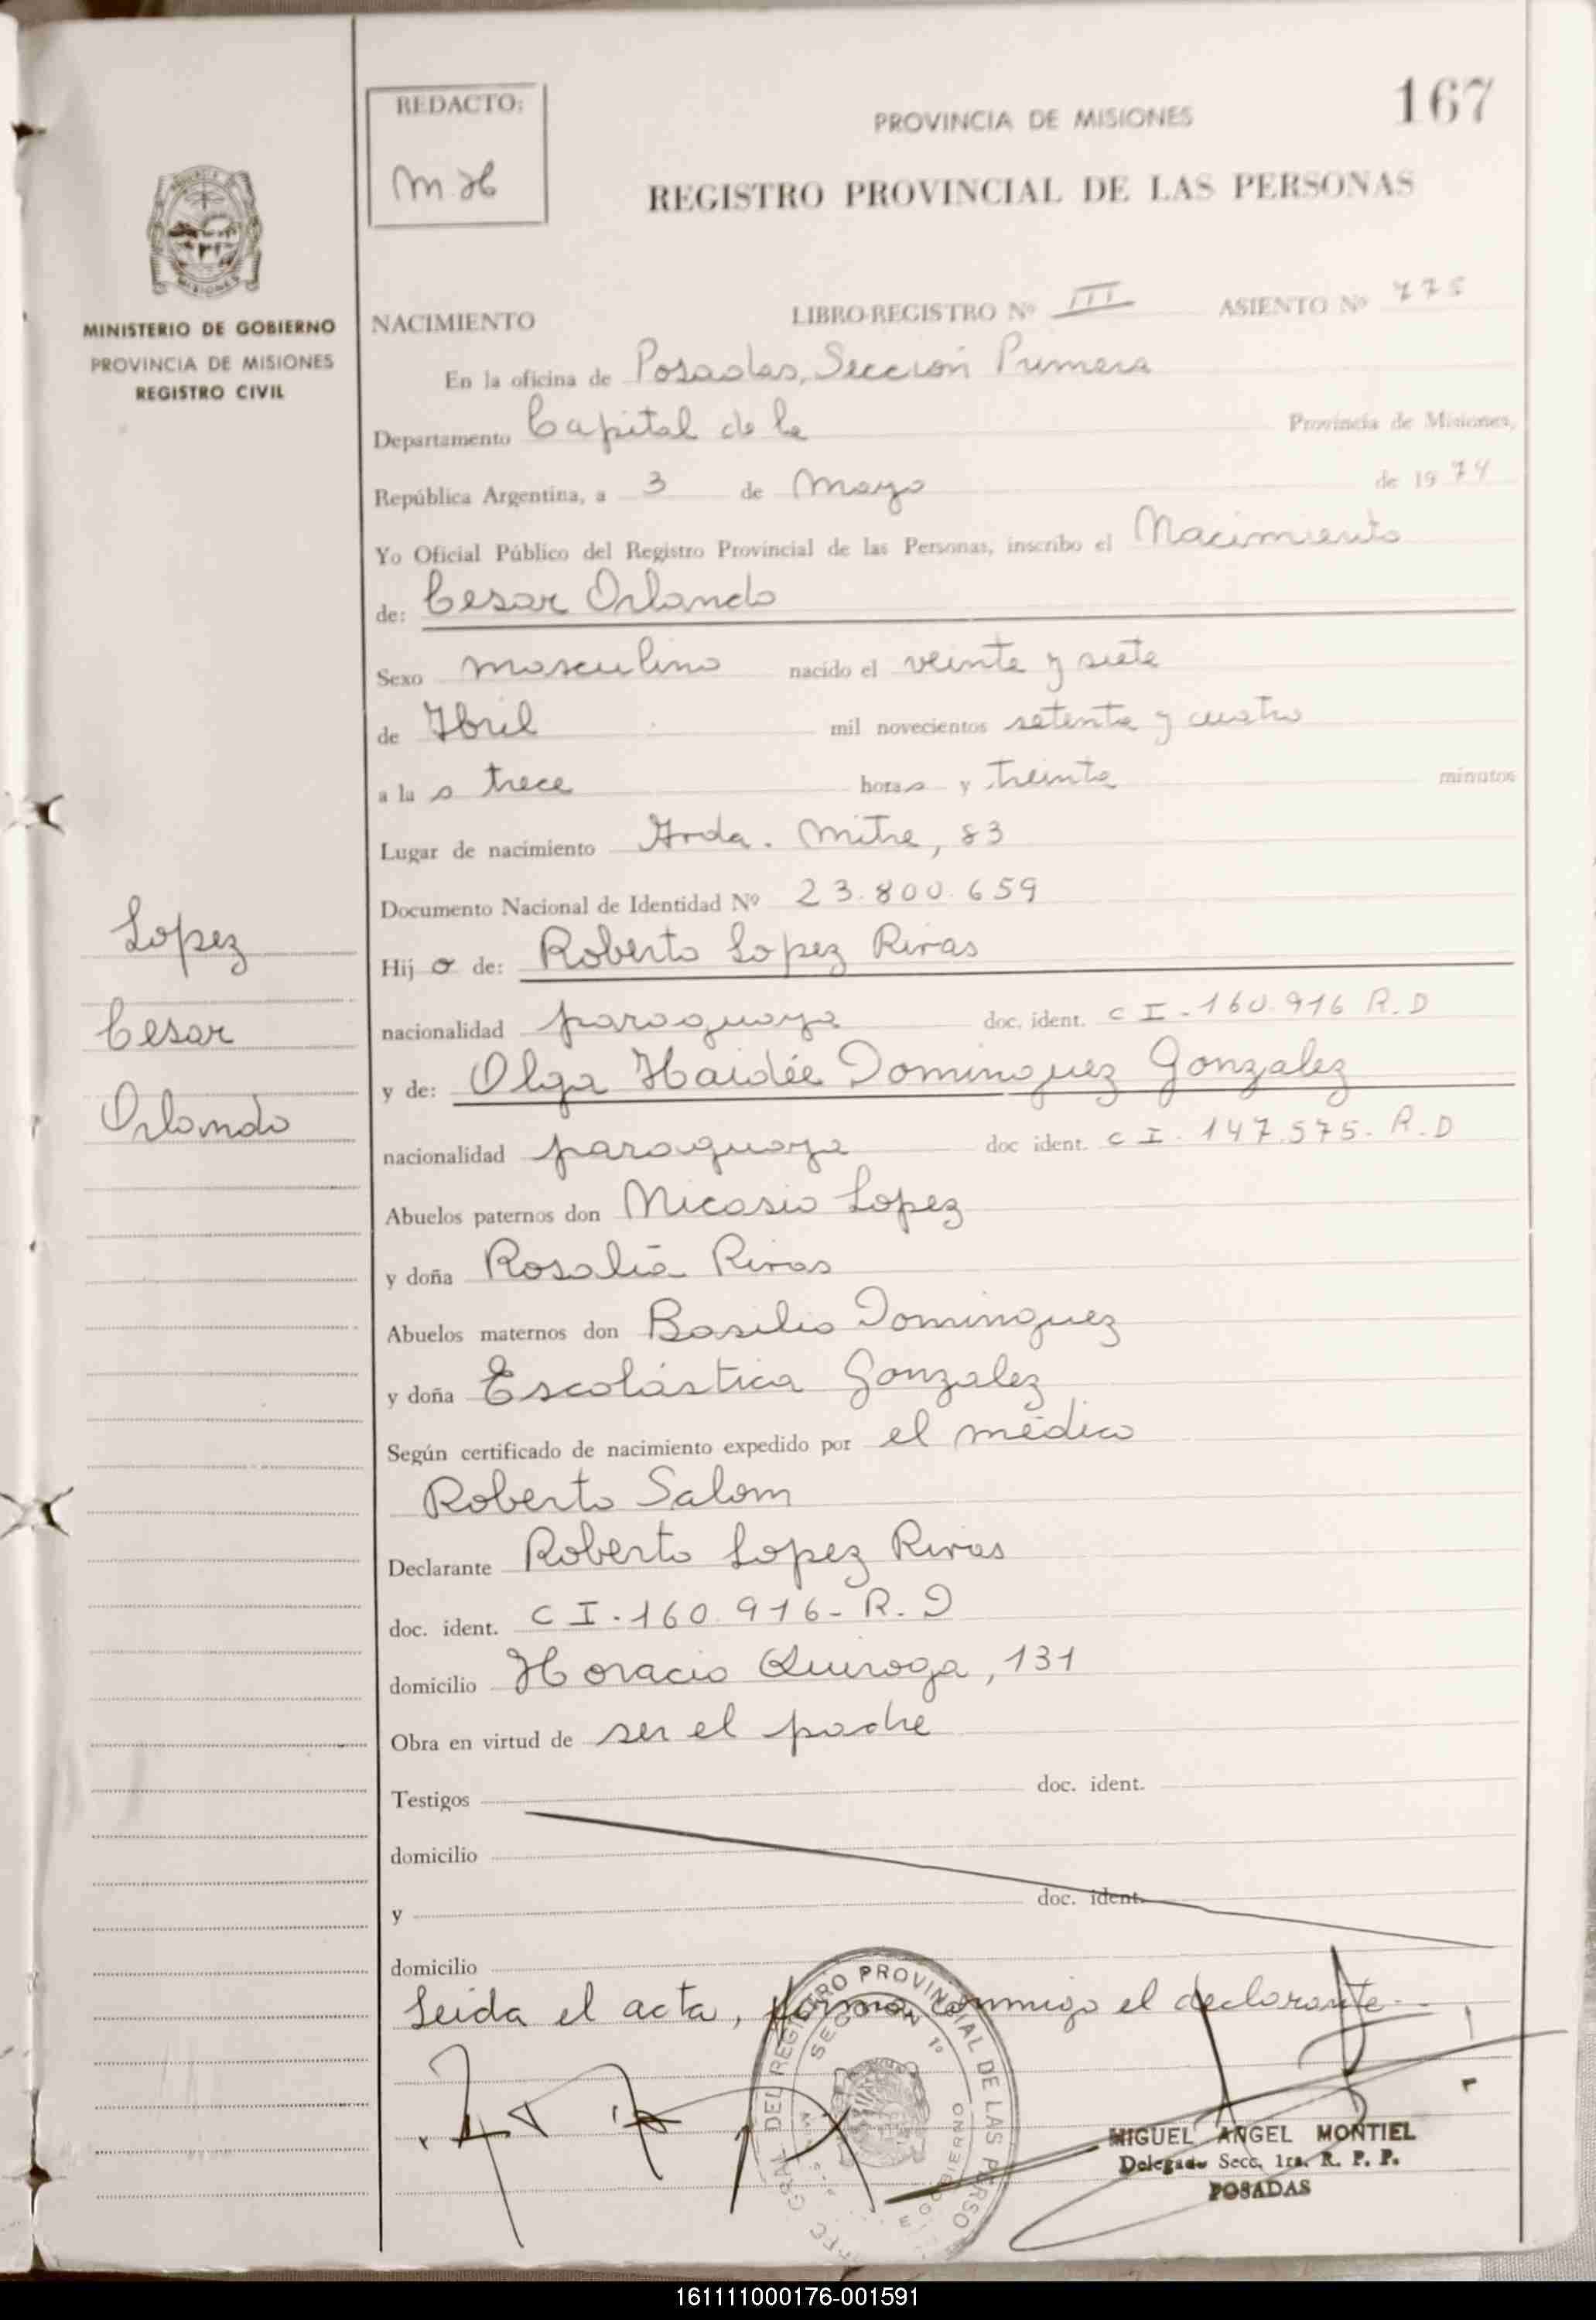 167
REDACTO:
M.H
PROVINCIA DE MISIONES
REGISTRO PROVINCIAL DE LAS PERSONAS
MISIONES
MINISTERIO DE GOBIERNO
PROVINCIA DE MISIONES
REGISTRO CIVIL
NACIMIENTO LIBRO-REGISTRO Nº III ASIENTO Nº 775
En la oficina de Posadas, Sección Primera
Departamento Capital de la Provincia de Misiones,
República Argentina, a 3 de Mayo de 1974
Yo Oficial Público del Registro Provincial de las Personas, inscribo el Nacimiento
de: Cesar Orlando
Sexo masculino nacido el veinte y siete
de Abril mil novecientos setenta y cuatro
a la s trece horas y treinta minutos
Lugar de nacimiento Avda. Mitre, 83
Documento Nacional de Identidad Nº 23.800.659
Hijo de: Roberto Lopez Rivas
nacionalidad paraguaya doc. ident. C I - 160.916 R.D
y de: Olga Haidée Dominguez Gonzalez
nacionalidad paraguaya doc ident. C I. 147.575- R.D
Abuelos paternos don Nicasio Lopez
y doña Rosalía Rivas
Abuelos maternos don Basilio Dominguez
y doña Escolástica Gonzalez
Según certificado de nacimiento expedido por el médico
Roberto Salom
Declarante Roberto Lopez Rivas
doc. ident. C I. 160.916- R.D
domicilio Horacio Quiroga, 131
Obra en virtud de ser el padre
Testigos doc. ident.
domicilio
y doc. ident.
domicilio
Leida el acta, firma conmigo el declarante.-
Lopez
Cesar
Orlando
DEL REGISTRO PROVINCIAL DE LAS PERSO
SECCION 1º
GOBIERNO
MIGUEL ANGEL MONTIEL
Delegado Secc. 1ra. R. P. P.
POSADAS
161111000176-001591